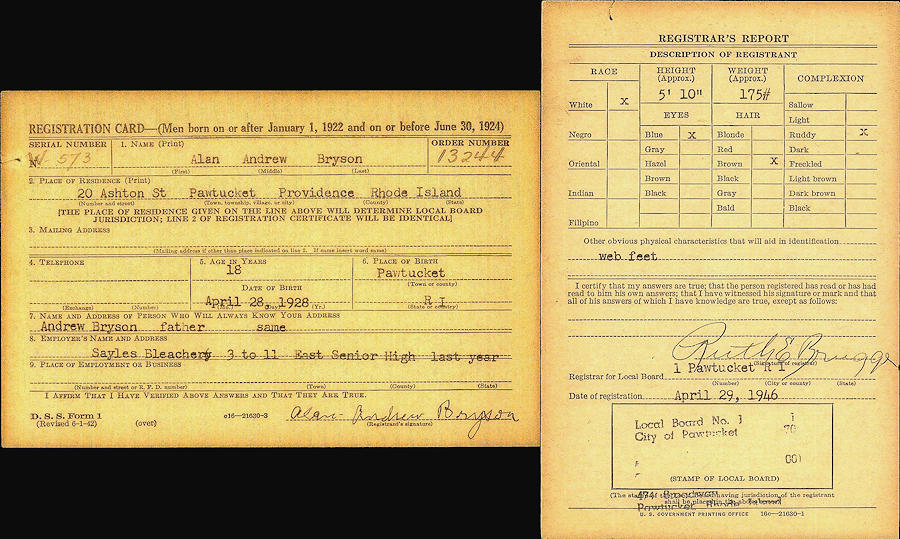 REGISTRATION CARD—(Men born on or after January 1, 1922 and on or before June 30, 1924)
SERIAL NUMBER
1. NAME (Print)
ORDER NUMBER
W 573
Alan Andrew Bryson
13244
(First) (Middle) (Last)
2. PLACE OF RESIDENCE (Print)
20 Ashton St Pawtucket Providence Rhode Island
(Number and street) (Town, township, village, or city) (County) (State)
[THE PLACE OF RESIDENCE GIVEN ON THE LINE ABOVE WILL DETERMINE LOCAL BOARD
JURISDICTION; LINE 2 OF REGISTRATION CERTIFICATE WILL BE IDENTICAL]
3. MAILING ADDRESS
(Mailing address if other than place indicated on line 2. If same insert word same)
4. TELEPHONE
5. AGE IN YEARS
6. PLACE OF BIRTH
18
Pawtucket
(Town or county)
DATE OF BIRTH
April 28, 1928
R I
(Exchange) (Number)
(Day) (Yr.)
(State or country)
7. NAME AND ADDRESS OF PERSON WHO WILL ALWAYS KNOW YOUR ADDRESS
Andrew Bryson father same
8. EMPLOYER'S NAME AND ADDRESS
Sayles Bleachery 3 to 11 East Senior High last year
9. PLACE OF EMPLOYMENT OR BUSINESS
(Number and street or R. F. D. number) (Town) (County) (State)
I AFFIRM THAT I HAVE VERIFIED ABOVE ANSWERS AND THAT THEY ARE TRUE.
D. S. S. Form 1
(Revised 6-1-42) (over)
c16—21630-3
Alan Andrew Bryson
(Registrant's signature)
REGISTRAR'S REPORT
DESCRIPTION OF REGISTRANT
RACE
HEIGHT
(Approx.)
WEIGHT
(Approx.)
COMPLEXION
White x
5' 10"
175#
Sallow
EYES
HAIR
Light
Negro
Blue x
Blonde
Ruddy x
Gray
Red
Dark
Oriental
Hazel
Brown x
Freckled
Brown
Black
Light brown
Indian
Black
Gray
Dark brown
Bald
Black
Filipino
Other obvious physical characteristics that will aid in identification
web feet
I certify that my answers are true; that the person registered has read or has had
read to him his own answers; that I have witnessed his signature or mark and that
all of his answers of which I have knowledge are true, except as follows:
Ruth E Brugge
(Signature of registrar)
Registrar for Local Board 1 Pawtucket R I
(Number) (City or county) (State)
Date of registration April 29, 1946
Local Board No. 1
City of Pawtucket
(STAMP OF LOCAL BOARD)
474 Broadway
Pawtucket Rhode Island
U. S. GOVERNMENT PRINTING OFFICE 16c—21630-1